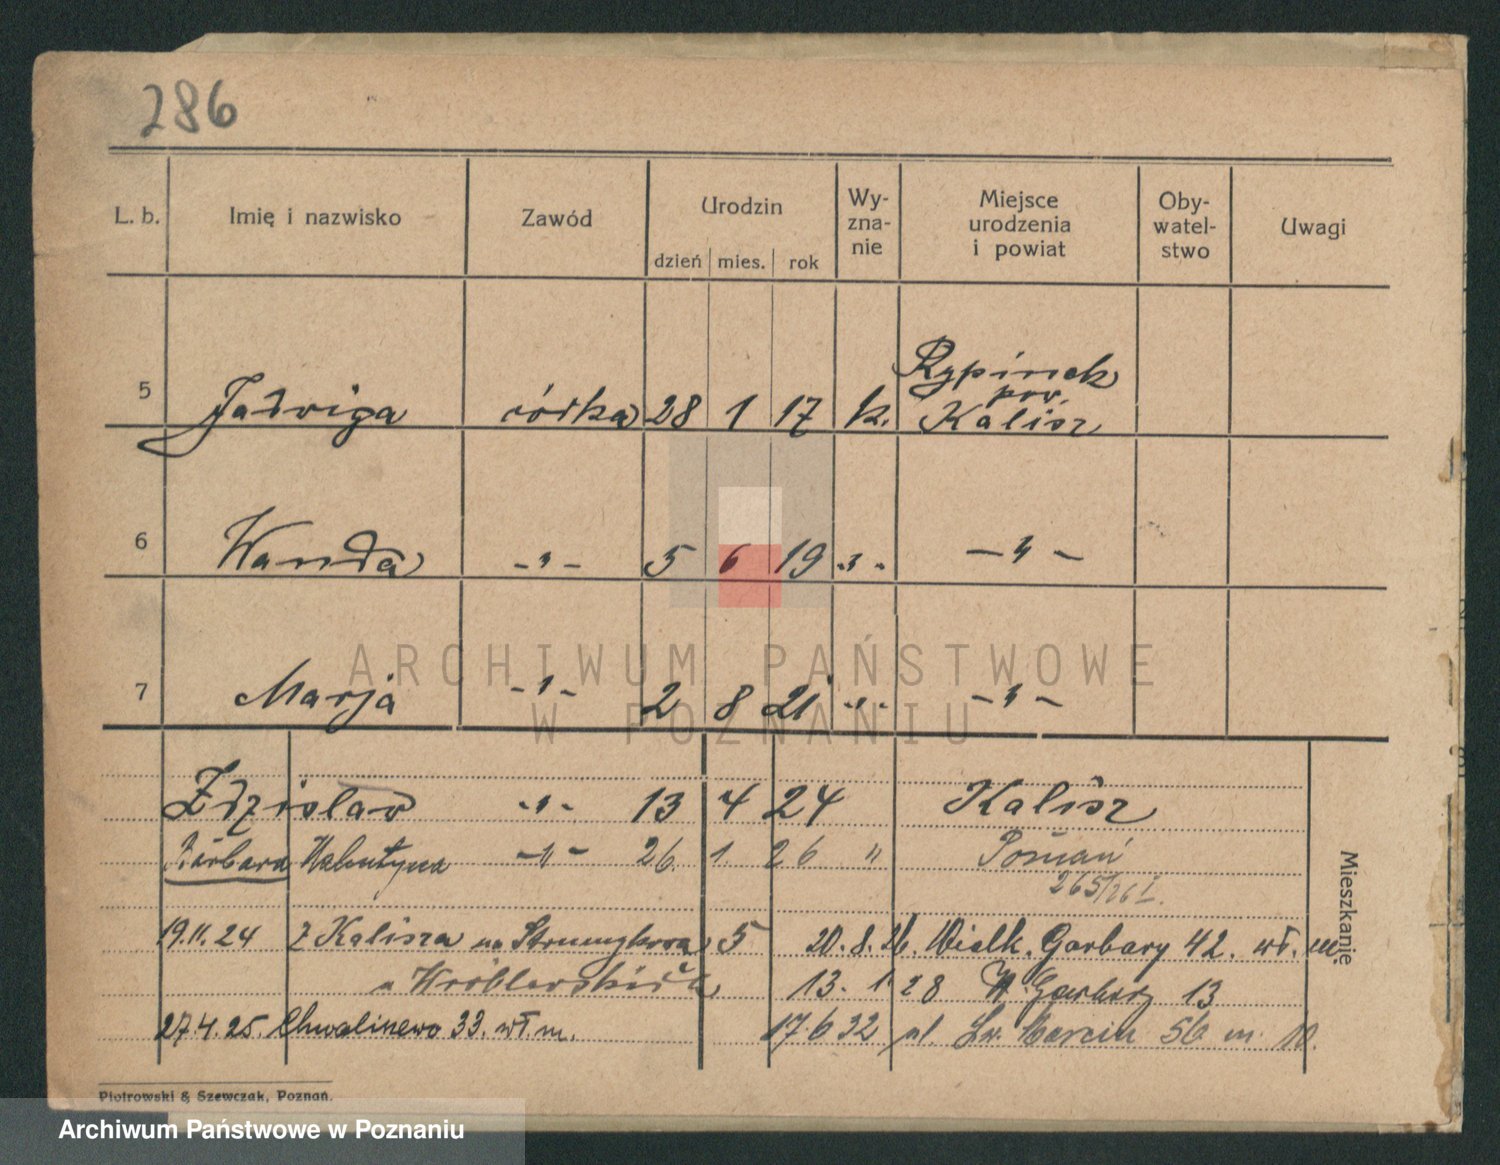 286
L. b. Imię i nazwisko Zawód Urodzin dzień mies. rok Wy- zna- nie Miejsce urodzenia i powiat Oby- watel- stwo Uwagi
5 Jadwiga córka 28 1 17 k. Rypinek pow. Kalisz
6 Wanda -"- 5 6 19 -"- -"-
7 Marja -"- 2 8 21 -"- -"-
ARCHIWUM PAŃSTWOWE
W POZNANIU
Zdzisław -"- 13 4 24 Kalisz
Barbara Walentyna -"- 26. 1. 26 " Poznań
265/26 I.
Mieszkanie
19.11.24 z Kalisza na Strumykowa 5
u Wróblewskich
27.4.25. Chwaliszewo 33. wł. m.
20.8.26. Wielk. Garbary 42. wł. m.
13. 1 28 W. Garbary 13
17.6 32 ul. Św. Marcin 56 m. 10.
Piotrowski & Szewczak, Poznań.
Archiwum Państwowe w Poznaniu